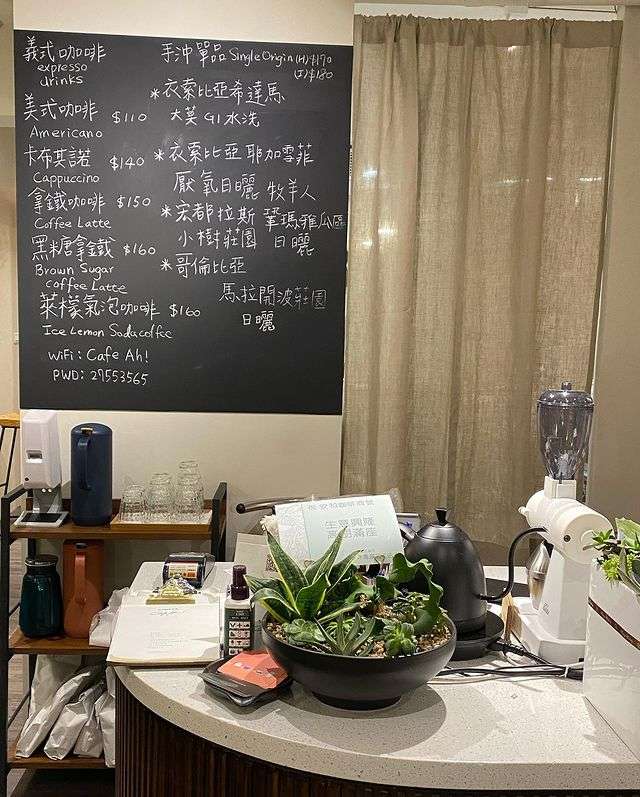 義式咖啡
expresso
drinks
美式咖啡 $110
Americano
卡布其諾 $140
Cappuccino
拿鐵咖啡 $150
Coffee Latte
黑糖拿鐵 $160
Brown Sugar
coffee Latte
萊檬氣泡咖啡 $160
Ice Lemon Sodacoffee
WiFi: Cafe Ah!
PWD: 27553565
手沖單品 Single Origin (H) $170
(I) $180
*衣索比亞希達馬
大莫 G1 水洗
*衣索比亞 耶加雪菲
厭氧日曬 牧羊人
*宏都拉斯 鞏瑪雅瓜區
小樹莊園 日曬
*哥倫比亞
馬拉開波莊園
日曬
生意興隆